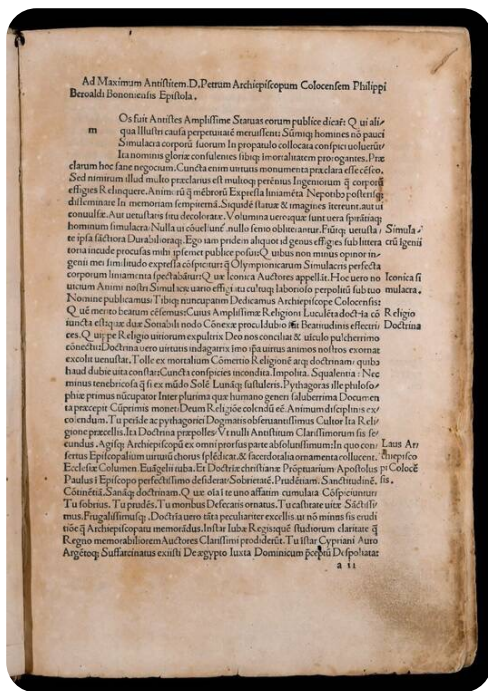 Ad Maximum Antistitem.D.Petrum Archiepiscopum Colocensem Philippi
Beroaldi Bononiensis Epistola.
m
Os fuit Antistes Amplissime Statuas eorum publice dicāt: Qui ali/
qua Illustri causa perpetuitatē meruissent: Sūmiq; homines nō pauci
Simulacra corporū suorum In propatulo collocata conspici uoluerūt
Ita nominis gloriæ consulentes sibiq; imortalitatem prorogantes. Præ
clarum hoc sane negocium. Cuncta enim uirtutis monumenta præclara esse cēseo.
Sed nimirum illud multo præclarius est multoq; perēnius Ingeniorum q̄ corporū
effigies Relinquere. Animorū q̄ mēbrorū Expressa liniamēta Nepotibo posterisq;
disseminare In memoriam sempiternā. Siquidē statuæ & imagines itereunt. aut ui
conuulsæ. Aut uetustatis situ decoloratæ. Volumina uero quæ sunt uera spirātiaq;
hominum simulacra. Nulla ui cōuellunt. nullo senio obliterantur. Fiūtq; uetusta/
te ipsa sāctiora Durabilioraq;. Ego iam pridem aliquot id genus effigies sub littera
toria incude procusas mihi ipsemet publice posui: Quibus non minus opinor in/
genii mei similitudo expressa cōspicitur: q̄ Olympionicarum Simulacris perfecta
corporum liniamenta spectabātur: Quæ Iconica Auctores appellāt. Hoc uero no
uicium Animi nostri Simulacrum
Nomine publicamus: Tibiq; nuncupatim Dedicamus Archiepiscope Colocensis:
Q uē merito beatum cēsemus: Cuius Amplissimæ Religioni Luculēta doctria cō
iuncta est
ces. Quippe Religio uitiorum expultrix Deo nos conciliat & uiculo pulcherrimo
cōnectit: Doctrina uero uirtutis indagatrix īmo ipa uirtus animos nostros exornat
excolit uenustat. Tolle ex mortalium Cōmertio Religionē atq; doctrinam: quibus
haud dubie uita constat: Cuncta conspicies incondita. Impolita. Squalentia: Nec
minus tenebricosa q̄ si ex mūdo Solē Lunāq; sustuleris. Pythagoras ille philoso/
phiæ primus nūcupator Inter plurima quæ humano generi saluberrima Documen
ta præcepit Cūprimis monet: Deum Religiōe colendū eē Animum disciplinis ex/
colendum. Tu perīde ac pythagorici Dogmatis obseruantissimus Cultor Ita Reli/
gione præcellis. Ita Doctrina præpolles Vt nulli Antistitum Clarissimorum sis se/
cundus. Agisq; Archiepiscopū ex omni prorsus parte absolutissimum: In quo con/
sertus Episcopalium uirtutū chorus splēdicat. & sacerdotalia ornamenta collucent.
Ecclesiæ Columen. Euāgelii tuba. Et Doctriæ christianæ Prōptuarium Apostolus
Paulus ī Episcopo perfectissimo desiderat Sobrietatē. Prudētiam. Sanctitudinē.
Cōtinētiā. Sanāq; doctrinam. Quæ oīa ī te uno affatim cumulata Cōspiciuntur:
Tu sobrius. Tu prudēs. Tu moribus Defecatis ornatus. Tu castitate uitæ Sāctissi/
mus. Frugalissimusq;. Doctria uero tāta peculiariter excellis. ut nō minus sis erudi
tiōe q̄ Archiepiscopatu memorādus. Instar Iubæ Regis quē studiorum claritate q̄
Regno memorabiliorem Auctores Clarissimi prodiderūt. Tu īstar Cypriani Auro
Argētoq; Suffarcinatus existi De ægypto Iuxta Dominicum p̄ceptū Despoliatæ
a ii
Simula/
crū īgenii
Iconica si
mulacra.
Religio
Doctrina
Laus Ar
chiepisco
pi Colocē
sis.